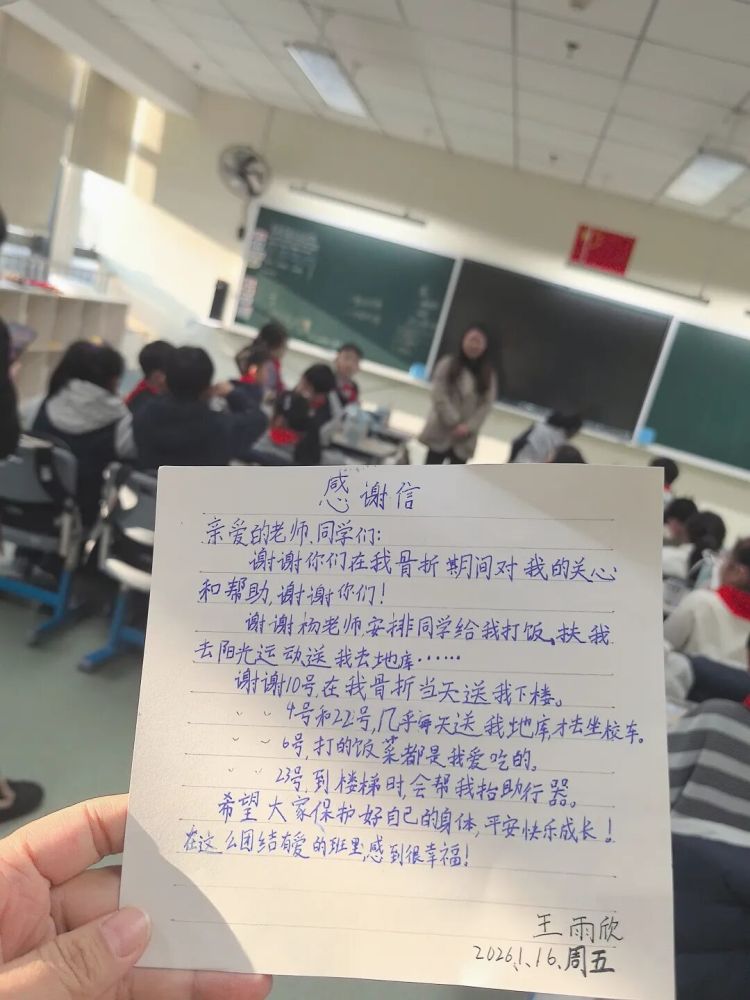 感谢信
亲爱的老师、同学们:
谢谢你们在我骨折期间对我的关心
和帮助,谢谢你们!
谢谢杨老师安排同学给我打饭、扶我
去阳光运动、送我去地库……
谢谢10号,在我骨折当天送我下楼。
〃 〃 4号和22号,几乎每天送我地库,才去坐校车。
〃 〃 6号,打的饭菜都是我爱吃的。
〃 〃 23号,到楼梯时,会帮我抬助行器。
希望大家保护好自己的身体,平安快乐成长!
在这么团结有爱的班里,感到很幸福!
王雨欣
2026.1.16.周五